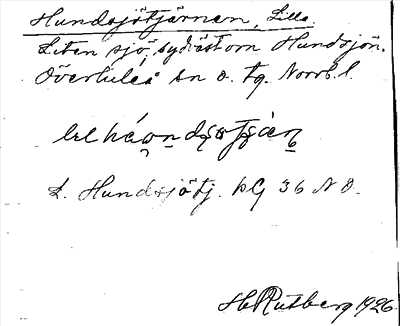 Hundsjötjärnen, Lilla.
Liten sjö, sydväst om Hundsjön.
Överluleå sn o. tg. Norrb. l.
L. Hundsjötj. kG 36 N O.
Hl Rutberg 1926.